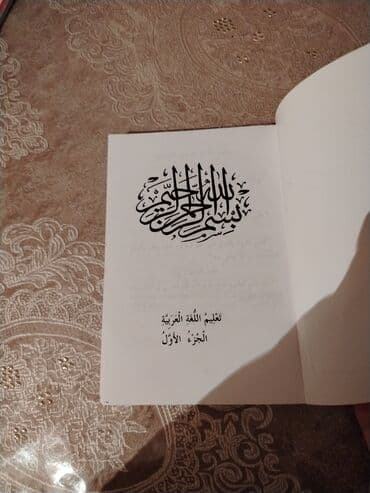 بسم الله الرحمن الرحيم
تَعْلِيمُ اللُّغَةِ الْعَرَبِيَّةِ
الْجُزْءُ الْأَوَّلُ